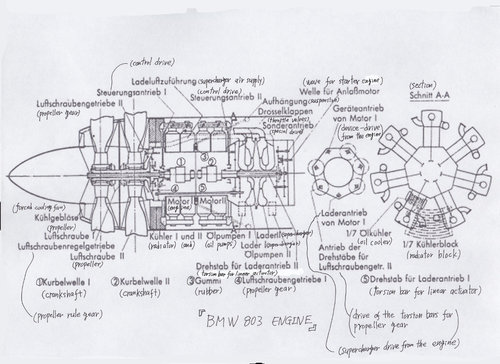 (control drive)
Ladeluftzuführung (supercharger air supply)
Steuerungsantrieb I (control drive)
Steuerungsantrieb II
Luftschraubengetriebe II
(propeller gear)
(wave for starter engine)
Welle für Anlaßmotor
Aufhängung
(suspension)
Drosselklappen
(throttle valves)
Sonderantrieb
(special drive)
Geräteantrieb
von Motor I
(device-drive)
(from the engine)
(section)
Schnitt A-A
① ② ③ ④ ⑤
Motor I
(engine)
Motor II
(forced cooling fan)
Kühlgebläse
(propeller)
Luftschraube I
Luftschraubenregelgetriebe
Luftschraube II
(propeller)
Kühler I und II
(radiator) (and)
Ölpumpen I
(oil pumps)
Lader I
Lader II
Ölpumpen II
Drehstab für Laderantrieb II
(torsion bar for linear actuator)
Laderantrieb
von Motor I
Antrieb der
Drehstäbe für
Luftschraubengetr. II
1/7 Ölkühler
(oil cooler)
1/7 Kühlerblock
(radiator block)
①Kurbelwelle I
(crankshaft)
②Kurbelwelle II
(crankshaft)
③Gummi
(rubber)
④Luftschraubengetriebe I
(propeller gear)
⑤Drehstab für Laderantrieb I
(torsion bar for linear actuator)
(propeller rule gear)
『BMW 803 ENGINE』
(drive of the torsion bars for
propeller gear)
(supercharger drive from the engine)